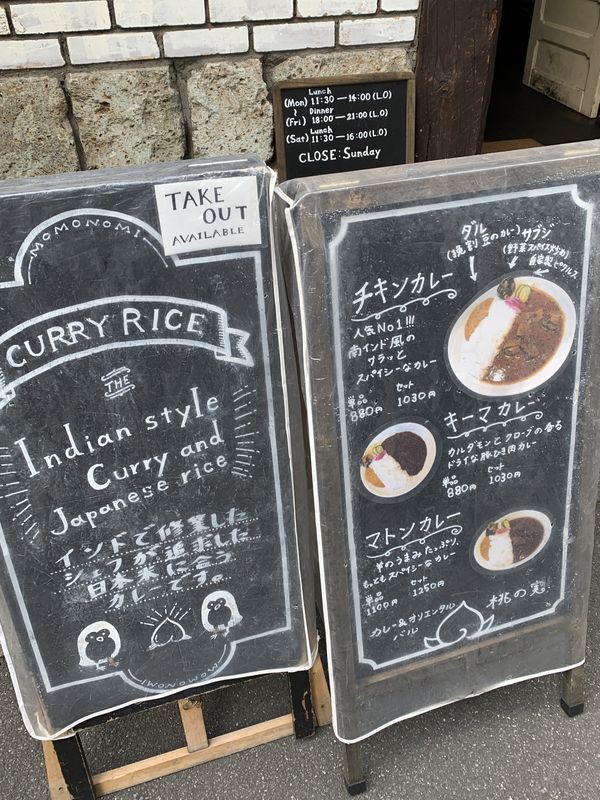 Lunch
(Mon) 11:30 — 14:00 (L.O)
〜 Dinner
(Fri) 18:00 — 21:00 (L.O)
Lunch
(Sat) 11:30 — 16:00 (L.O)
CLOSE: Sunday
TAKE
OUT
AVAILABLE
MOMONOMI
CURRY RICE
THE
Indian style
Curry and
Japanese rice
インドで修業した
シェフが追求した
日本米に合う
カレーです。
MOMONOMI
ダル
(挽割豆のカレー)
サブジ
(野菜スパイス炒め)
自家製ピクルス
チキンカレー
人気No1!!!
南インド風の
サラッと
スパイシーなカレー
単品 セット
880円 1030円
キーマカレー
カルダモンとクローブの香る
ドライな豚ひき肉カレー
単品 セット
880円 1030円
マトンカレー
羊のうまみたっぷり、
もっともスパイシーなカレー
単品 セット
1100円 1250円
カレー&オリエンタル
バル
桃の実。